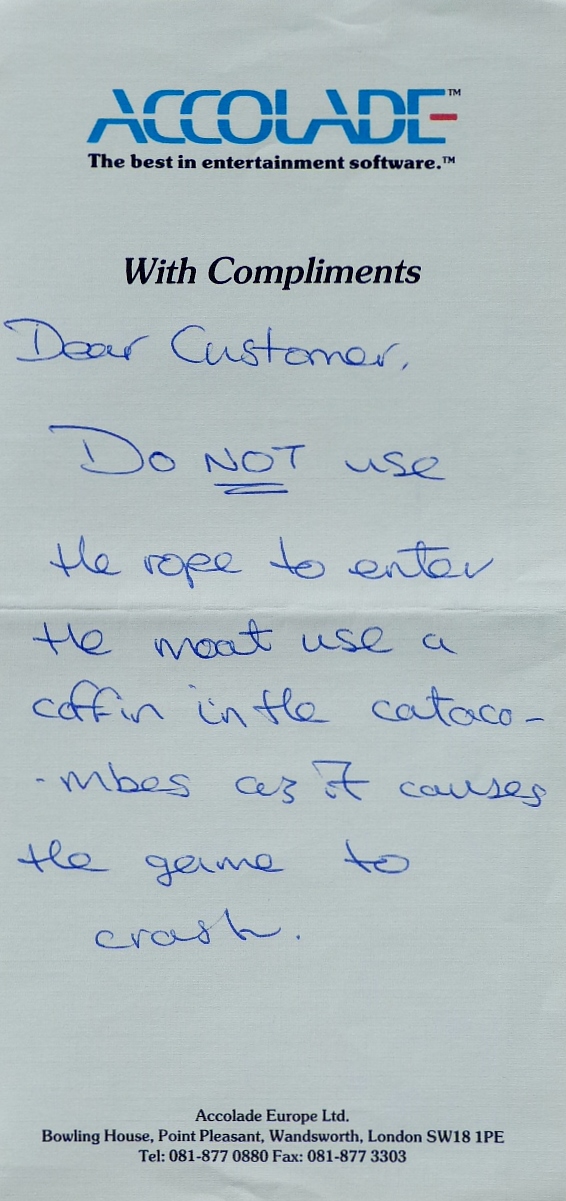 ACCOLADE™
The best in entertainment software.™
With Compliments
Dear Customer,
Do NOT use
the rope to enter
the moat use a
coffin in the cataco-
-mbes as it causes
the game to
crash.
Accolade Europe Ltd.
Bowling House, Point Pleasant, Wandsworth, London SW18 1PE
Tel: 081-877 0880 Fax: 081-877 3303